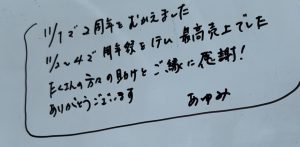 11/1で2周年をむかえました
11/2~4で周年祭を行い最高売上でした
たくさんの方々の助けとご縁に感謝！
ありがとうございます
あゆみ